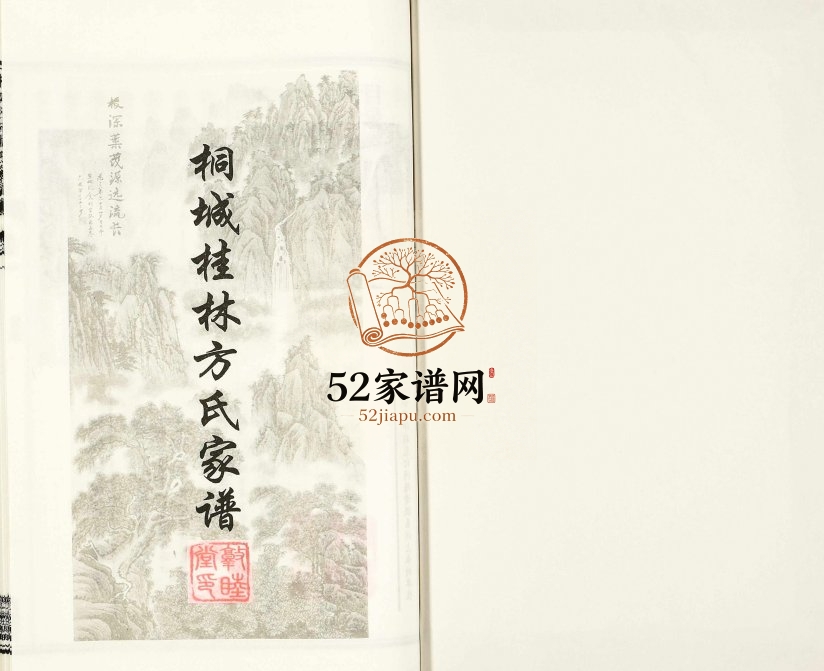 根深葉茂源远流长
桐城桂林方氏家谱
敦睦
堂印
52家谱网
52jiapu.com